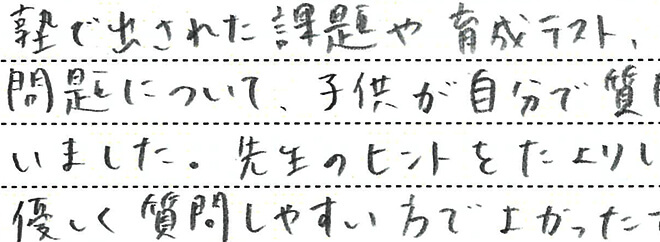 塾で出された課題や育成テスト、
問題について、子供が自分で質
いました。先生のヒントをたよりし
優しく質問しやすい方でよかった